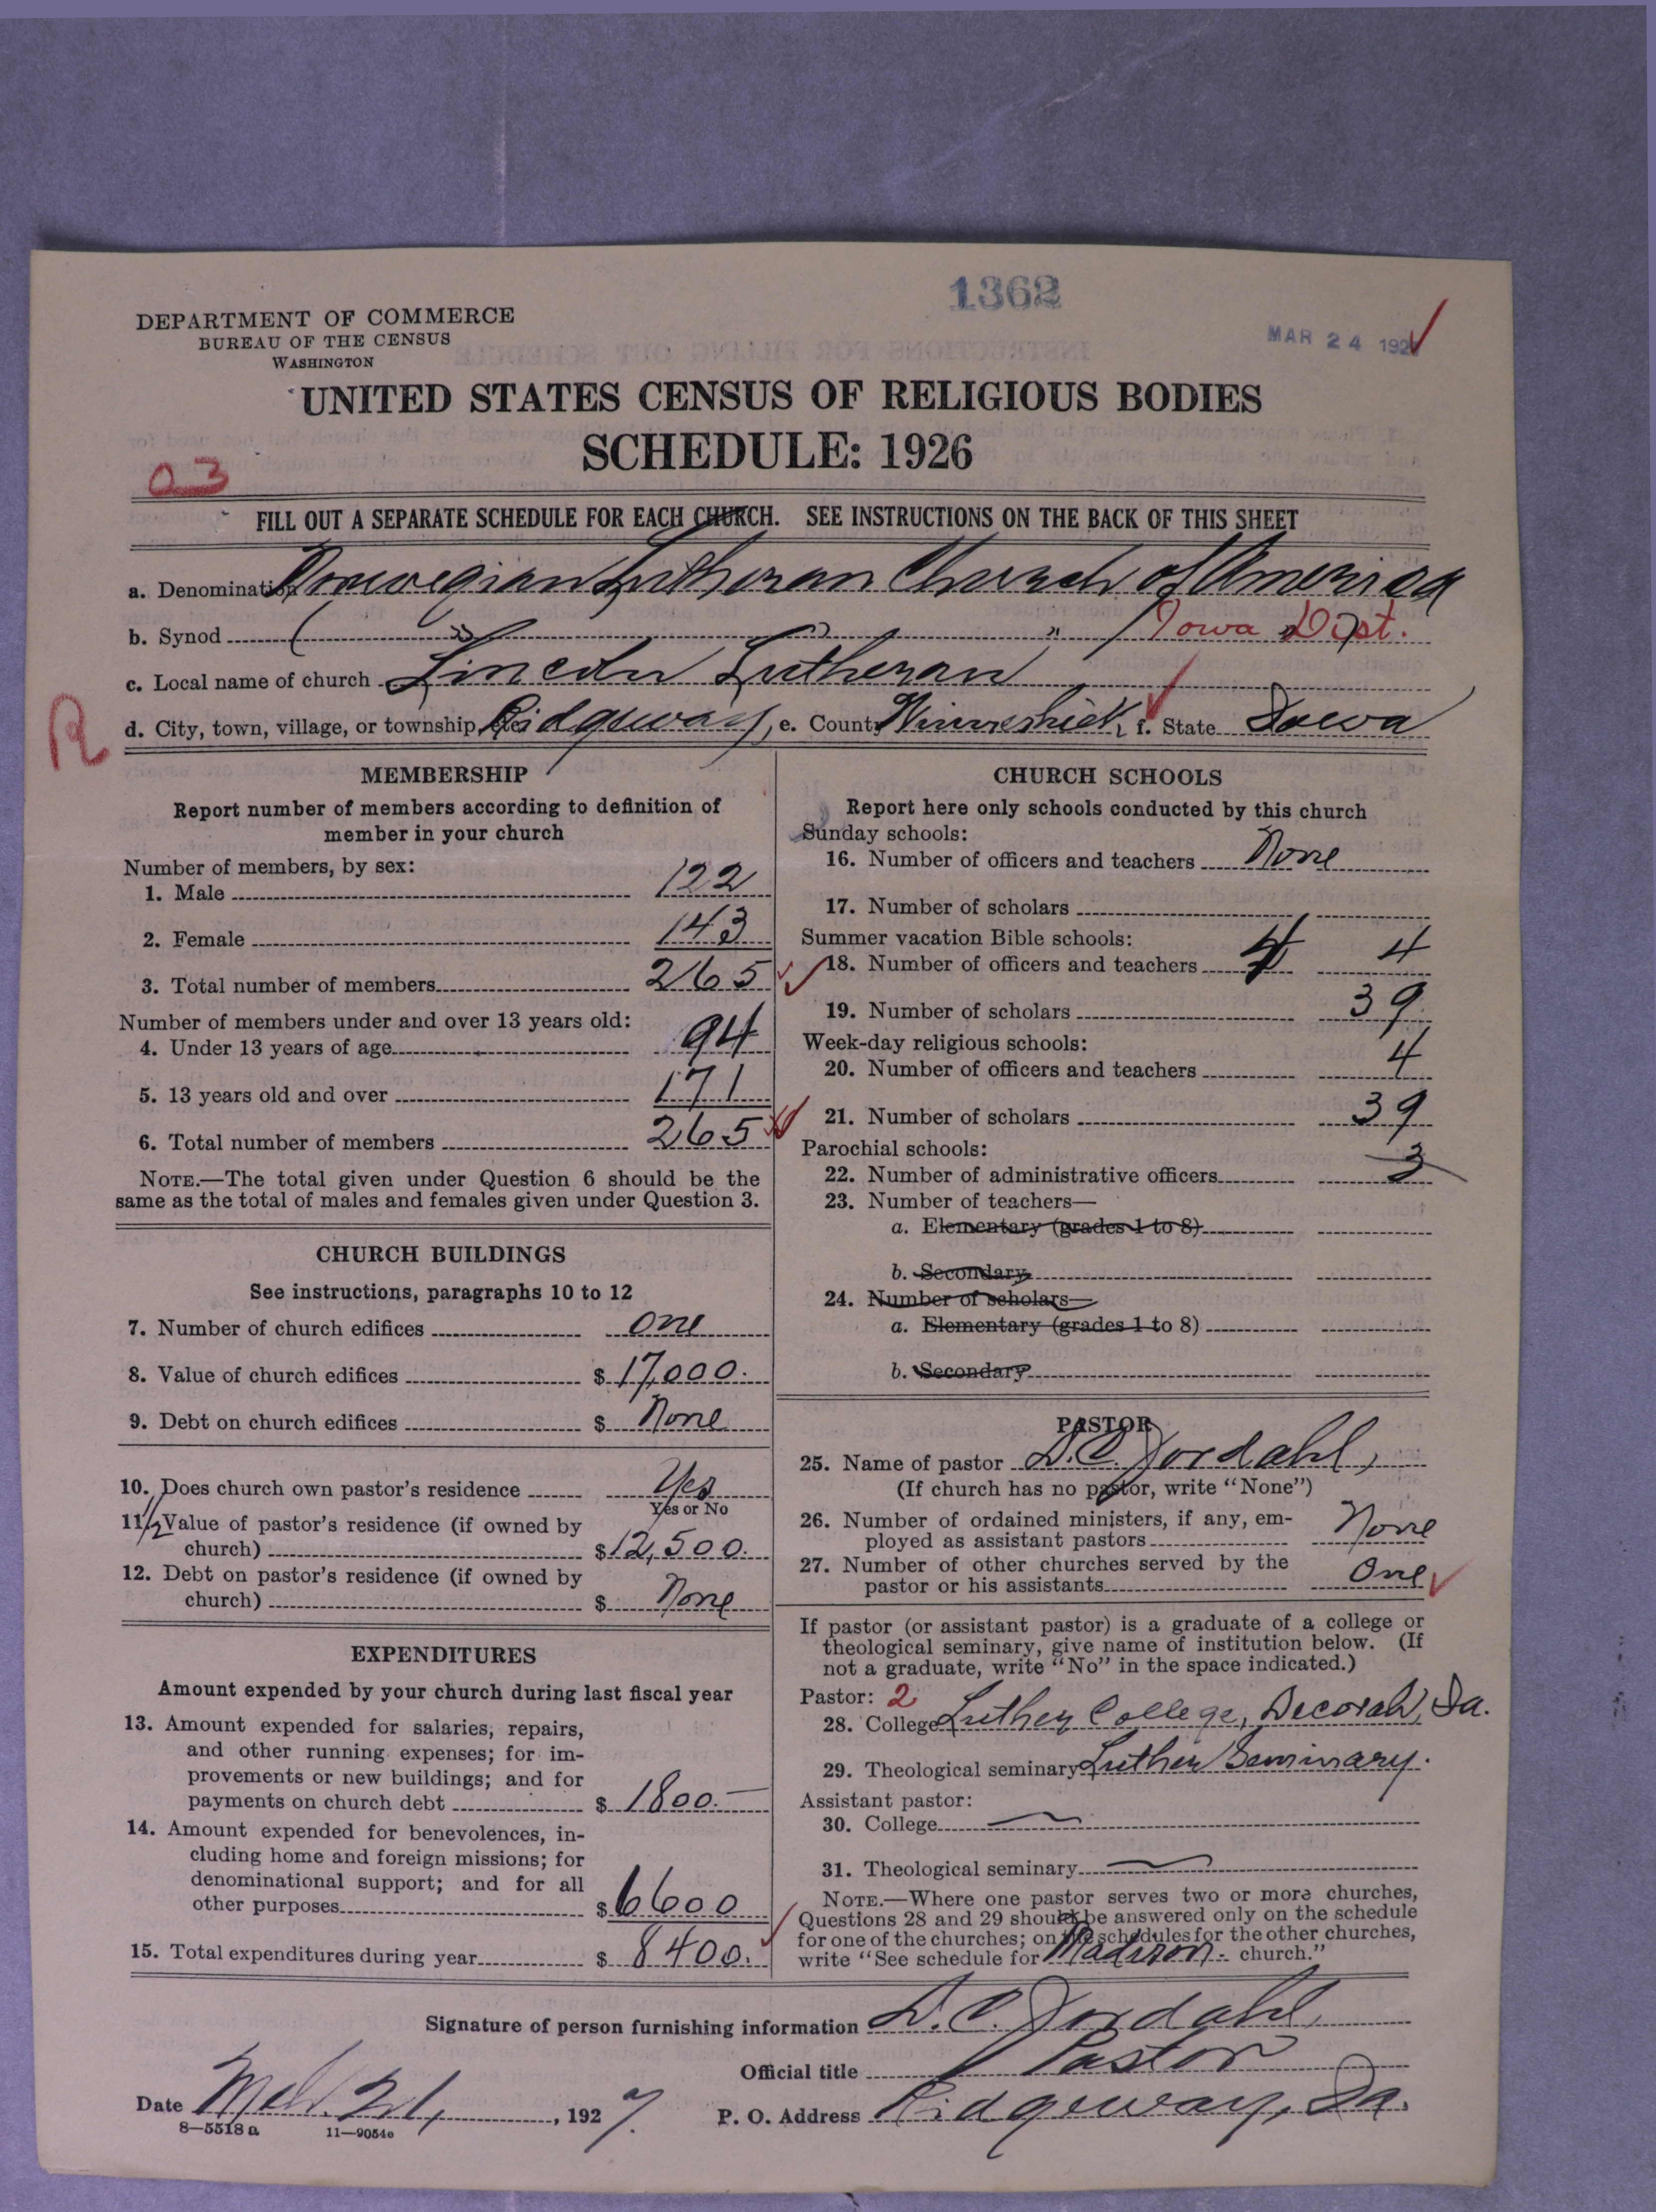 1362
MAR 24 192
DEPARTMENT OF COMMERCE
BUREAU OF THE CENSUS
WASHINGTON
UNITED STATES CENSUS OF RELIGIOUS BODIES
SCHEDULE: 1926
03
FILL OUT A SEPARATE SCHEDULE FOR EACH CHURCH. SEE INSTRUCTIONS ON THE BACK OF THIS SHEET
a. Denomination Norwegian Lutheran Church of America
b. Synod ( " " " " ) Iowa Dist.
c. Local name of church Lincoln Lutheran
R
d. City, town, village, or township, etc. Ridgeway, e. County Winneshiek, f. State Iowa
MEMBERSHIP
Report number of members according to definition of
member in your church
Number of members, by sex:
1. Male 122
2. Female 143
3. Total number of members 265
Number of members under and over 13 years old:
4. Under 13 years of age 94
5. 13 years old and over 171
6. Total number of members 265
NOTE.—The total given under Question 6 should be the
same as the total of males and females given under Question 3.
CHURCH BUILDINGS
See instructions, paragraphs 10 to 12
7. Number of church edifices one
8. Value of church edifices $ 17,000.
9. Debt on church edifices $ None
10. Does church own pastor's residence Yes
Yes or No
11. 1/2 Value of pastor's residence (if owned by
church) $ 12,500.
12. Debt on pastor's residence (if owned by
church) $ None
EXPENDITURES
Amount expended by your church during last fiscal year
13. Amount expended for salaries, repairs,
and other running expenses; for im-
provements or new buildings; and for
payments on church debt $ 1800.—
14. Amount expended for benevolences, in-
cluding home and foreign missions; for
denominational support; and for all
other purposes $ 6600
15. Total expenditures during year $ 8400.
CHURCH SCHOOLS
Report here only schools conducted by this church
Sunday schools:
16. Number of officers and teachers None
17. Number of scholars
Summer vacation Bible schools:
18. Number of officers and teachers 4 4
19. Number of scholars 39
Week-day religious schools:
20. Number of officers and teachers 4
21. Number of scholars 39
Parochial schools:
22. Number of administrative officers 3
23. Number of teachers—
a. Elementary (grades 1 to 8)
b. Secondary
24. Number of scholars—
a. Elementary (grades 1 to 8)
b. Secondary
PASTOR
25. Name of pastor D. C. Jordahl,
(If church has no pastor, write "None")
26. Number of ordained ministers, if any, em-
ployed as assistant pastors None
27. Number of other churches served by the
pastor or his assistants One
If pastor (or assistant pastor) is a graduate of a college or
theological seminary, give name of institution below. (If
not a graduate, write "No" in the space indicated.)
Pastor: 2
28. College Luther College, Decorah, Ia.
29. Theological seminary Luther Seminary.
Assistant pastor:
30. College
31. Theological seminary
NOTE.—Where one pastor serves two or more churches,
Questions 28 and 29 should be answered only on the schedule
for one of the churches; on the schedules for the other churches,
write "See schedule for Madison church."
Signature of person furnishing information D. C. Jordahl,
Official title Pastor
Date Mch. 21, 1927. P. O. Address Ridgeway, Ia.
8—5518 a 11—9054e